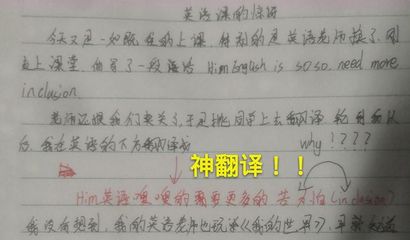 英语课的惊讶
今天又是一如既往的上课,特别的是英语老师换了,刚
上课堂,他写了一段话给 Him English is so so. need more
inclusion.
老师还跟我们卖关子,于是挑同学上去翻译,轮到我以
后,我在英语的下方翻译成 why!???
神翻译!!
Him英语嗖嗖的需要更多的苦力怕(inclusion)
我没有想到,我的英语老师也玩《我的世界》,